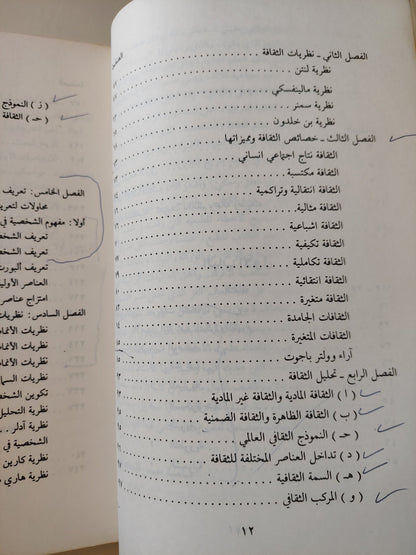 الفصل الثاني ـ نظريات الثقافة
نظرية لنتن
نظرية مالينفسكي
نظرية سمنر
نظرية بن خلدون
الفصل الثالث ـ خصائص الثقافة ومميزاتها
الثقافة نتاج اجتماعي انساني
الثقافة مكتسبة
الثقافة انتقالية وتراكمية
الثقافة مثالية
الثقافة اشباعية
الثقافة تكيفية
الثقافة تكاملية
الثقافة انتقائية
الثقافة متغيرة
الثقافات الجامدة
الثقافات المتغيرة
آراء وولتر باجوت
الفصل الرابع ـ تحليل الثقافة
( ا ) الثقافة المادية والثقافة غير المادية
( ب ) الثقافة الظاهرة والثقافة الضمنية
( حـ ) النموذج الثقافي العالمي
( د ) تداخل العناصر المختلفة للثقافة
( هـ ) السمة الثقافية
( و ) المركب الثقافي
١٢
( ز ) النموذج
( حـ ) الثقافة
الفصل الخامس : تعريف
محاولات لتعريف
أولا : مفهوم الشخصية في
تعريف الشخص
تعريف الشخ
تعريف ألبورت
العناصر الأولية
امتزاج عناصر
الفصل السادس : نظريات
نظريات الأنماط
نظريات الأنما
نظريات الأنما
نظريات السما
تكوين الشخص
نظرية التحليل
نظرية آدلر
الشخصية في
نظرية كارين
نظرية هاري